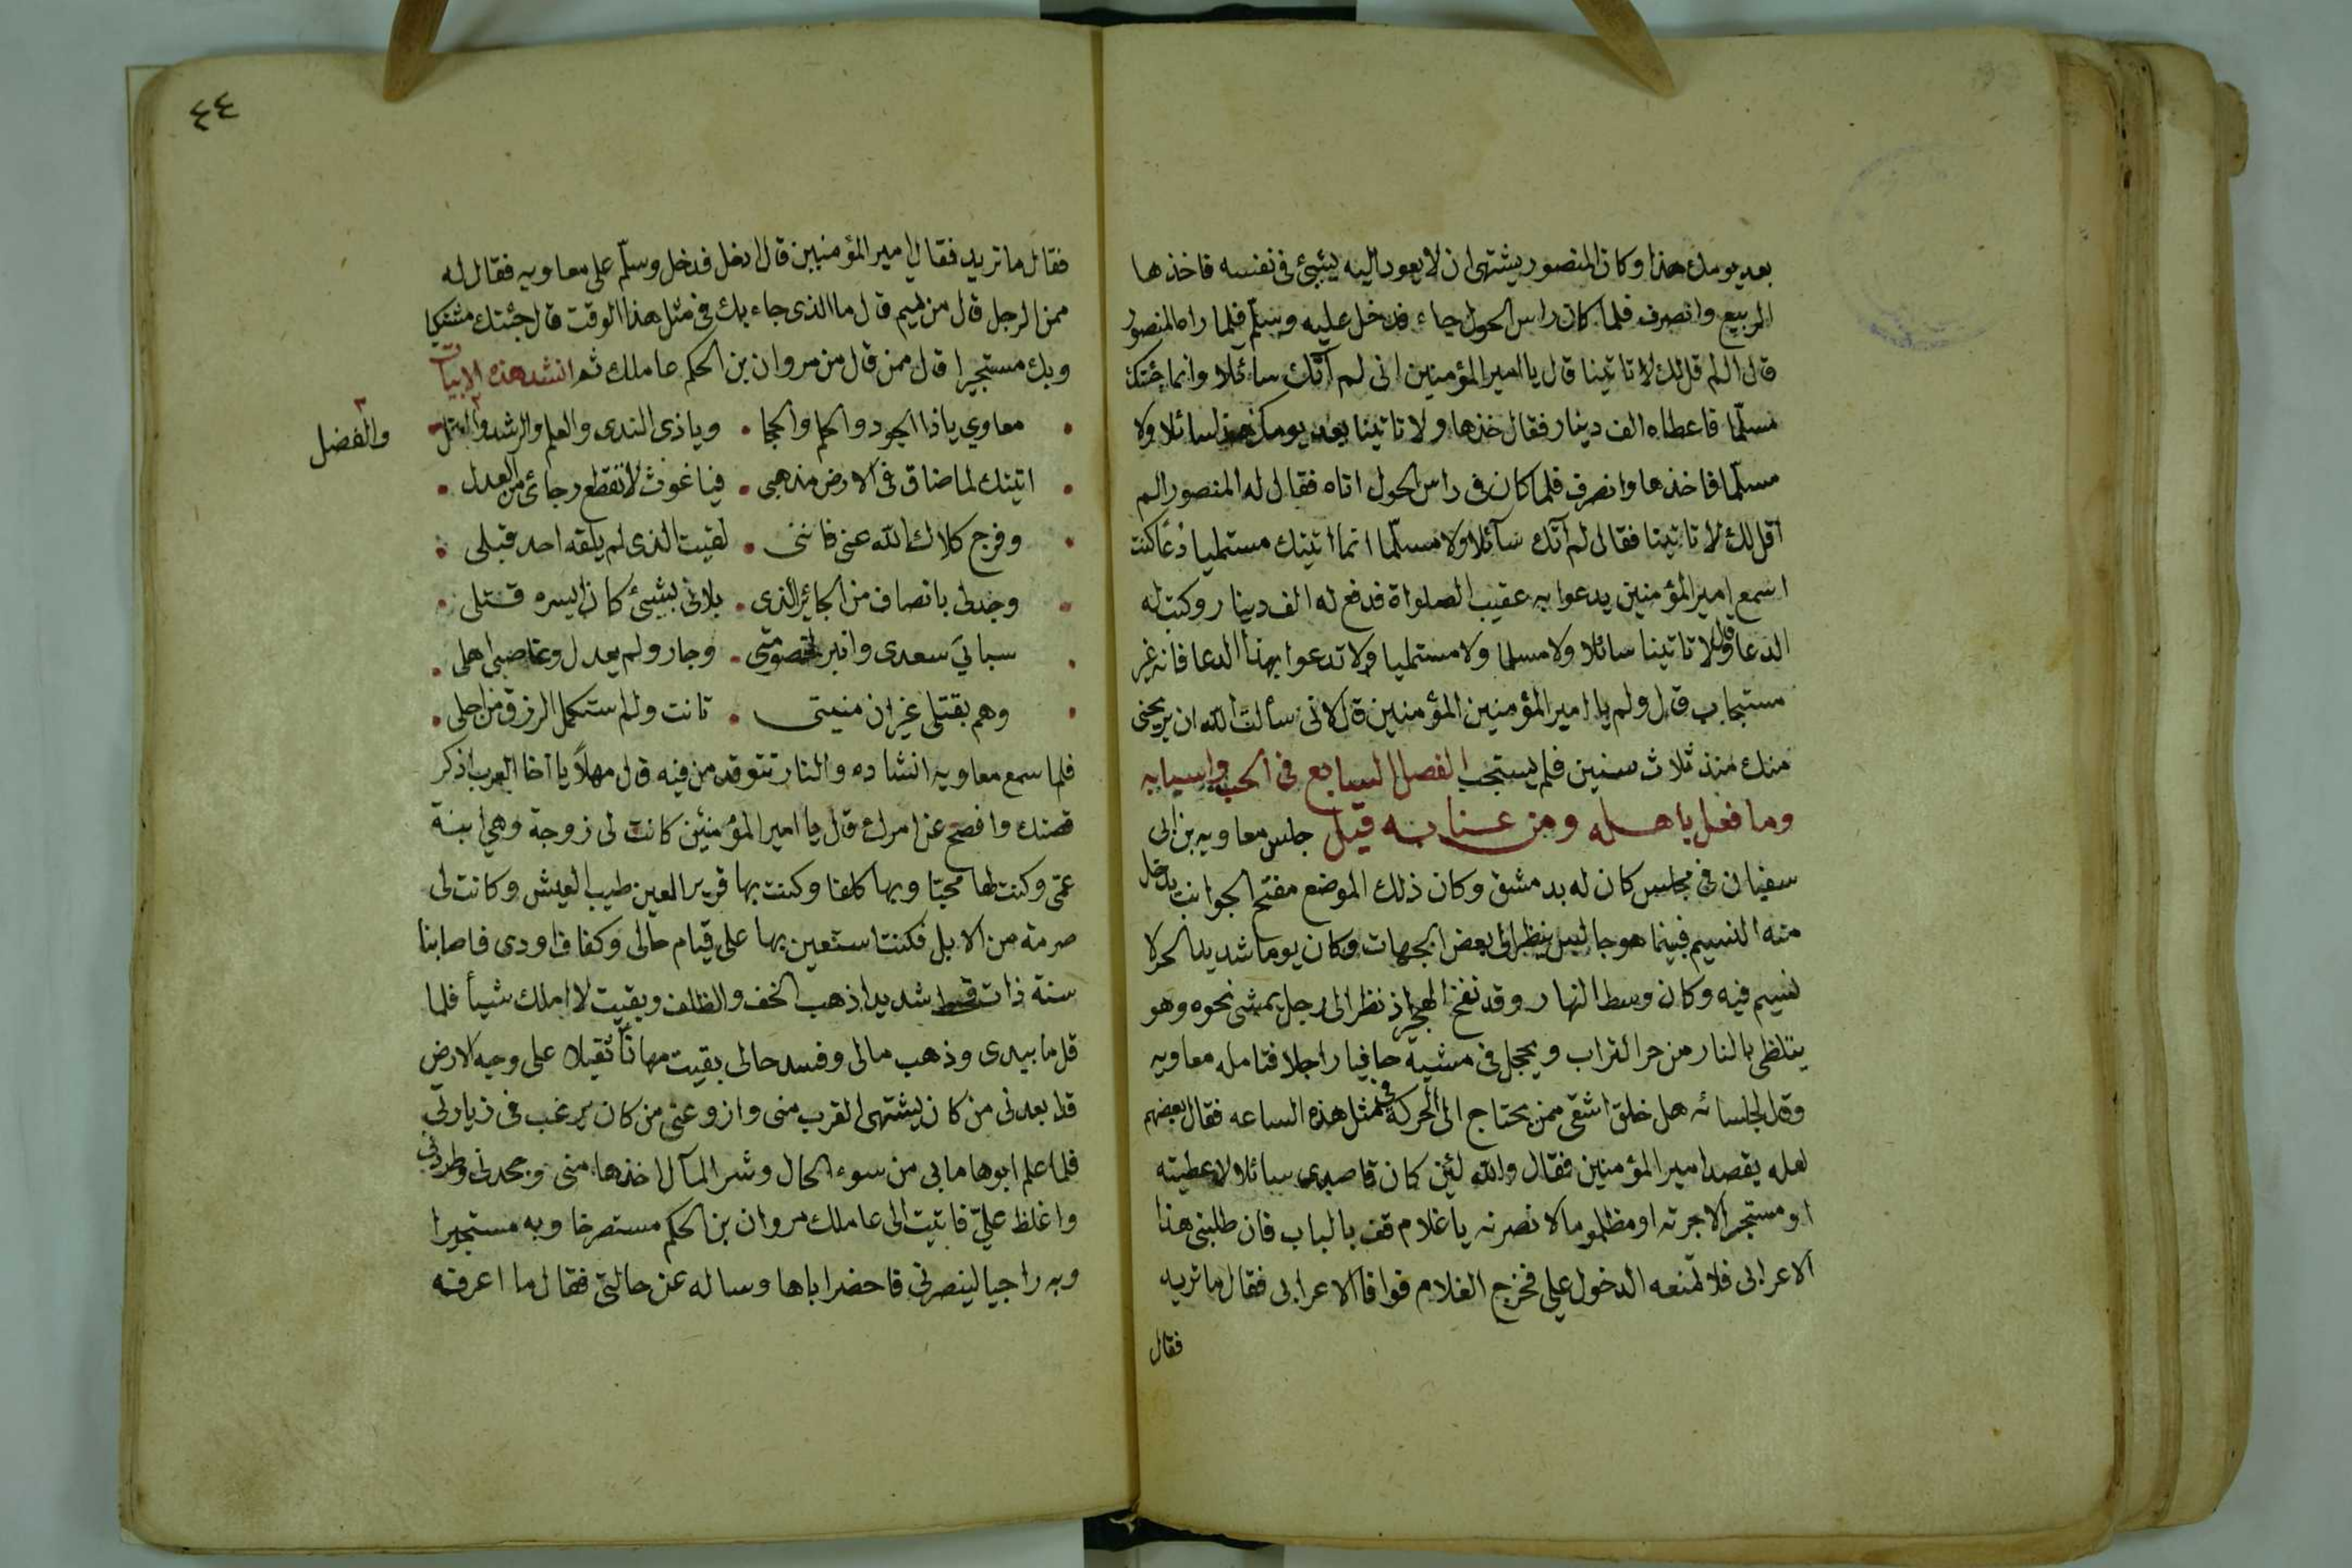 بعد يومك هذا وكان المنصور يشتهي ان لا يعود اليه بشئ في نفسه فاخذها
الربيع وانصرف فلما كان راس الحول جاء فدخل عليه وسلّم فلما راه المنصور
قال الم قل لك لا تاتينا قال يا امير المؤمنين انى لم آتك سائلا وانما جئتك
مسلّما فاعطاه الف دينار فقال خذها ولا تاتينا بعد يومك هذا سائلا ولا
مسلّما فاخذها وانصرف فلما كان فى راس الحول اتاه فقال له المنصور الم
اقل لك لا تاتينا فقال لم آتك سآئلا ولا مسلّما انما اتيتك مستمليا دُعًا كنت
اسمع امير المؤمنين يدعوا به عقيب الصلواة فدفع له الف دينار وكتب له
الدعا وقال لا تاتينا سائلا ولا مسلما ولا مستمليا ولا تدعوا بهذا الدعا فانه غير
مستجاب قال ولم يا امير المؤمنين المؤمنين قال لانى سألتُ الله ان يريحنى
منك منذ ثلاث سنين فلم يستجب الفصل السابع فى الحب واسبابه
وما فعل باهله ومن عنا به قيل جلس معاويه بن ابى
سفيان فى مجلس كان له بدمشق وكان ذلك الموضع مفتح الجوانب يدخل
منه النسيم فبينما هو جالس ينظر الى بعض الجهات وكان يوما شديد الحر لا
نسيم فيه وكان وسط النهار وقد نفخ الهجير اذ نظر الى رجل يمشى نحوه وهو
يتلظى بالنار من حر التراب ويحجل فى مشيه حافيا راجلا فتامله معاويه
وقال لجلسائه هل خلق اشقى ممن يحتاج الى الحركة فى مثل هذه الساعه فقال بعضهم
لعله يقصد امير المؤمنين فقال والله لئن كان قاصدى سائلا لاعطيته
او مستجيرا لاجرته او مظلوما لانصرنه يا غلام قف بالباب فان طلبنى هذا
الاعرابى فلا تمنعه الدخول علي فخرج الغلام فوافا الاعرابى فقال ما تريد
فقال
٤٤
فقال ما تريد فقال امير المؤمنين قال ادخل فدخل وسلّم على معاويه فقال له
ممن الرجل قال من تميم قال ما الذى جاء بك فى مثل هذا الوقت قال جئتك مشتكيا
وبك مستجيرا قال ممن قال من مروان بن الحكم عاملك ثم انشد هذه الابيات
معاوي ياذا الجود والحلم والحجا • وياذى الندى والعلم والرشد والنبل
والفضل
اتيتك لما ضاق فى الارض مذهبى • فيا غوث لا تقطع رجائى من العدل
وفرج كلاك الله عنى فاننى • لقيت الذى لم يلقه احد قبلى
وجد لى بانصاف من الجائر الذى • بلانى بشئ كان ايسره قتلى
سبانى سعدى وانبرا لخصومتى • وجار ولم يعدل وغاصبنى اهلى
وهم بقتلى غير ان منيتى • تانت ولم استكمل الرزق من اجلى
فلما سمع معاويه انشاده والنار تتوقد من فيه قال مهلاً يا اخا العرب اذكر
قصتك وافصح عن امرك قال يا امير المؤمنين كانت لى زوجة وهي ابنة
عمّى وكنت لها محبّا وبها كلفا وكنت بها قرير العين طيب العيش وكانت لى
صرمة من الابل فكنت استعين بها على قيام حالى وكفاف اودى فاصابنا
سنة ذات قحط شديد اذهب الخف والظلف وبقيت لا املك شيأ فلما
قل ما بيدى وذهب مالى وفسد حالى بقيت مهاناً ثقيلا على وجه الارض
قد ابعدنى من كان يشتهى القرب منى وازوعنى من كان يرغب فى زيارتى
فلما علم ابوها ما بى من سوء الحال وشر المآل اخذها منى وجحدنى وطردنى
واغلظ عليّ فاتيت الى عاملك مروان بن الحكم مستصرخا وبه مستجيرا
وبه راجيا لينصرنى فاحضر اباها وساله عن حالتى فقال ما اعرفه